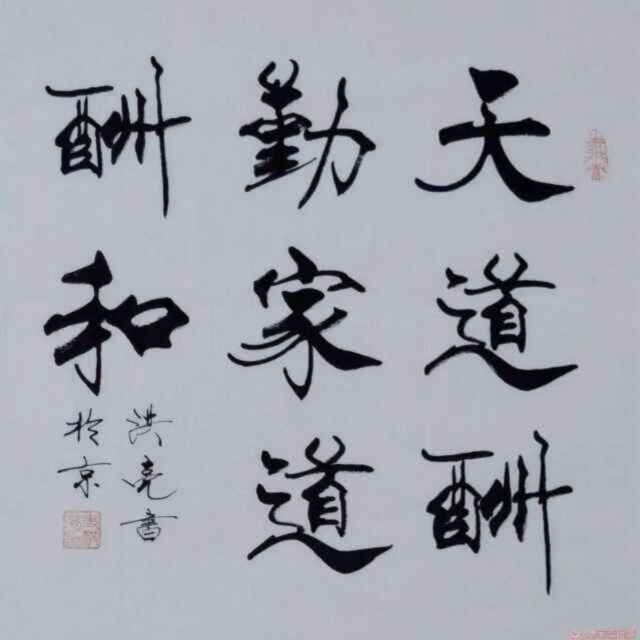 天道酬
勤家道
酬和
洪亮書
於京